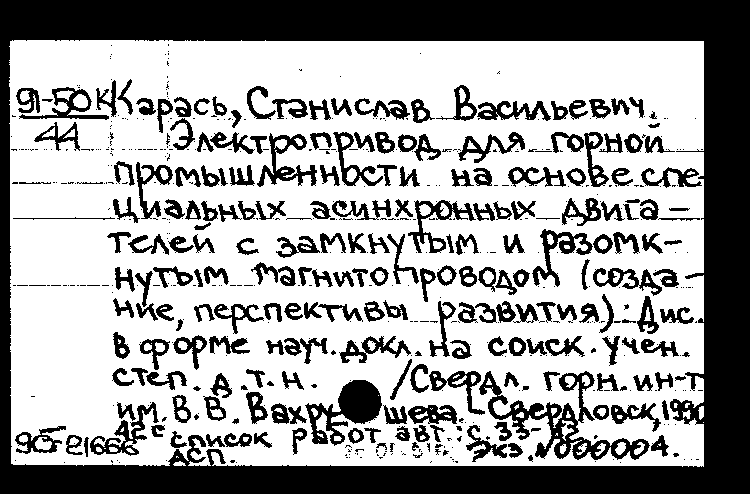 91-50К Карась, Станислав Васильевич.
44 Электропривод для горной
промышленности на основе спе-
циальных асинхронных двига-
телей с замкнутым и разомк-
нутым магнитопроводом (созда-
ние, перспективы развития): Дис.
в форме науч. докл. на соиск. учен.
степ. д.т.н. /Свердл. горн. ин-т
им. В.В. Вахрушева.-Свердловск, 1990
42 с список работ авт.: с. 33-42.
ДСП. Экз. №000004.